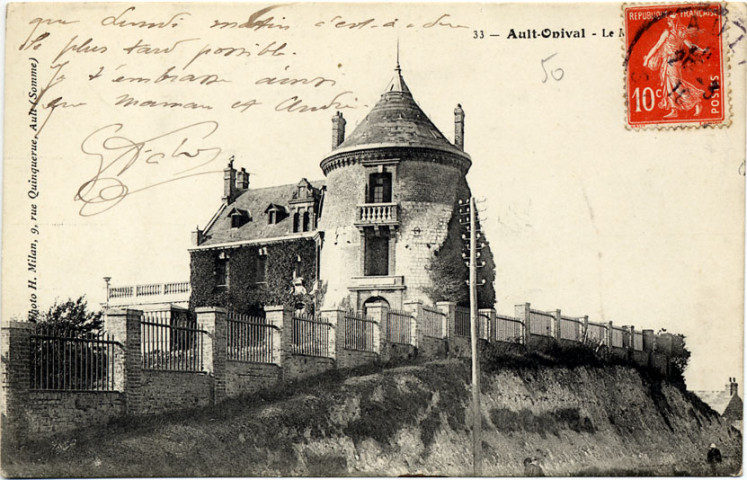 que Lundi matin c'est-à-dire
le plus tard possible.
Je t'embrasse ainsi
que maman et André
33 — Ault-Onival - Le
50
RÉPUBLIQUE FRANÇAISE
10c POSTES
Photo H. Milan, 9, rue Quinquerue, Ault (Somme)